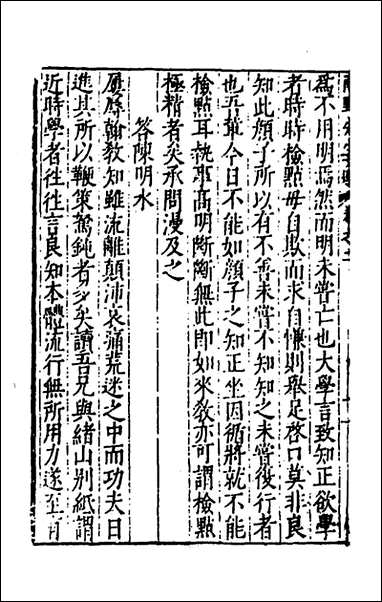 爲不用明焉然而明未嘗亡也大學言致知正欲學
者時時檢點毋自欺而求自慊則舉足啓口莫非良
知此顔子所以有不善未嘗不知知之未嘗復行者
也吾輩今日不能如顔子之知正坐因循將就不能
檢點耳執事高明斷斷無此即如來教亦可謂檢點
極精者矣承問漫及之
答陳明水
屢辱翰教知雖流離顛沛哀痛荒迷之中而功夫日
進其所以鞭策駑鈍者多矣讀吾兄與緒山别紙謂
近時學者往往言良知本體流行無所用力遂至有